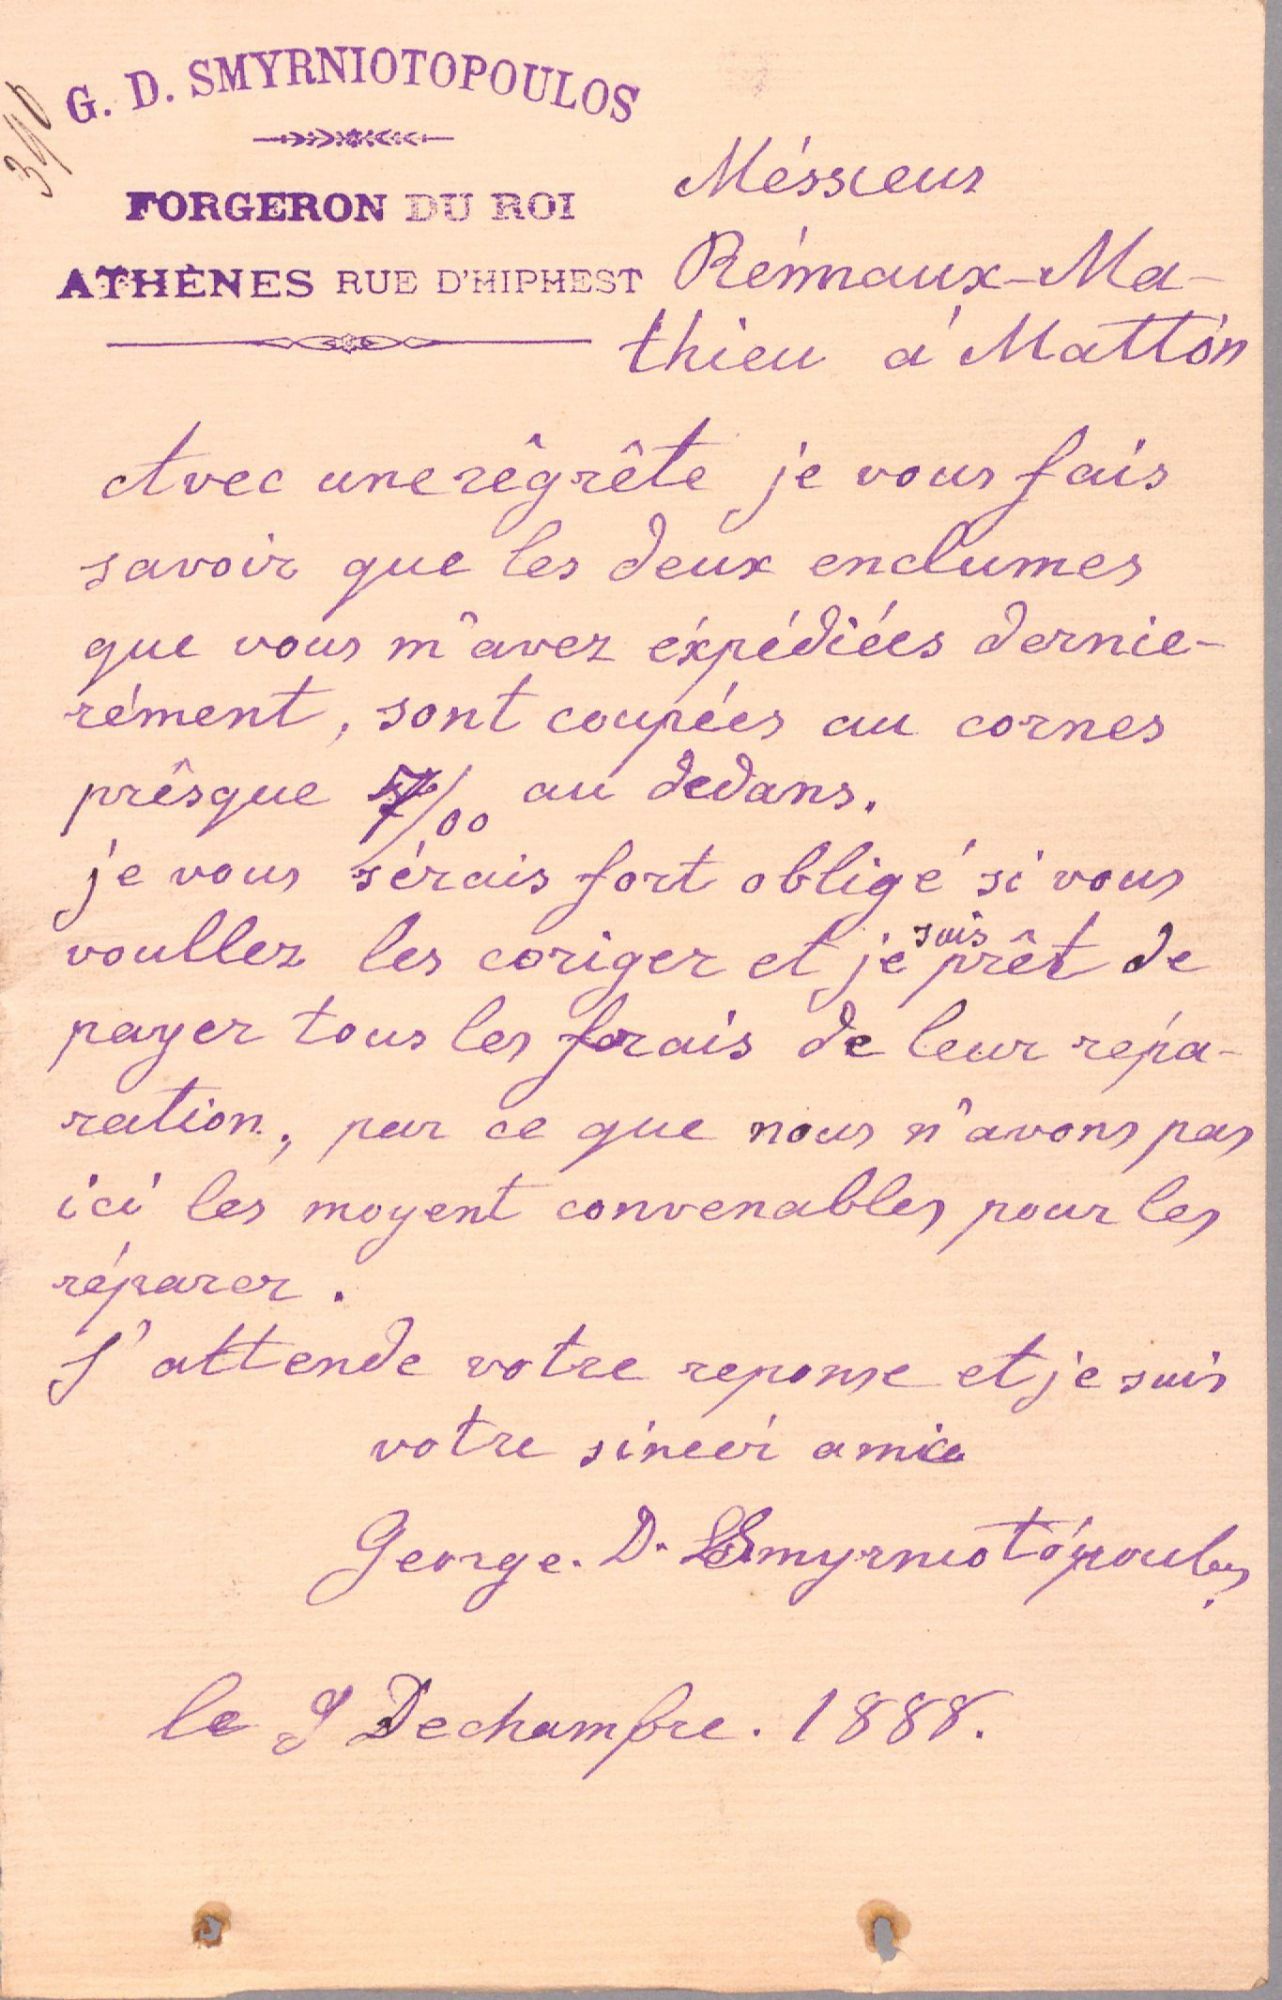 390
G. D. SMYRNIOTOPOULOS
FORGERON DU ROI
ATHÈNES RUE D'HIPHEST
Méssieur
Rémaux-Ma-
thieu á Mattón
Avec une rêgrête je vous fais
savoir que les deux enclumes
que vous m'avez éxpédiées dernie-
rément, sont coupées au cornes
prêsque 7/00 au dedans.
je vous sérais fort obligé si vous
voullez les coriger et je suis prêt de
payer tous les forais de leur répa-
ration, par ce que nous n'avons pas
ici les moyent convenables pour les
réparer.
J'attende votre reponse et je suis
votre sineèr amie
George. D. Smyrniotópoulos.
le 9 Dechambre. 1888.